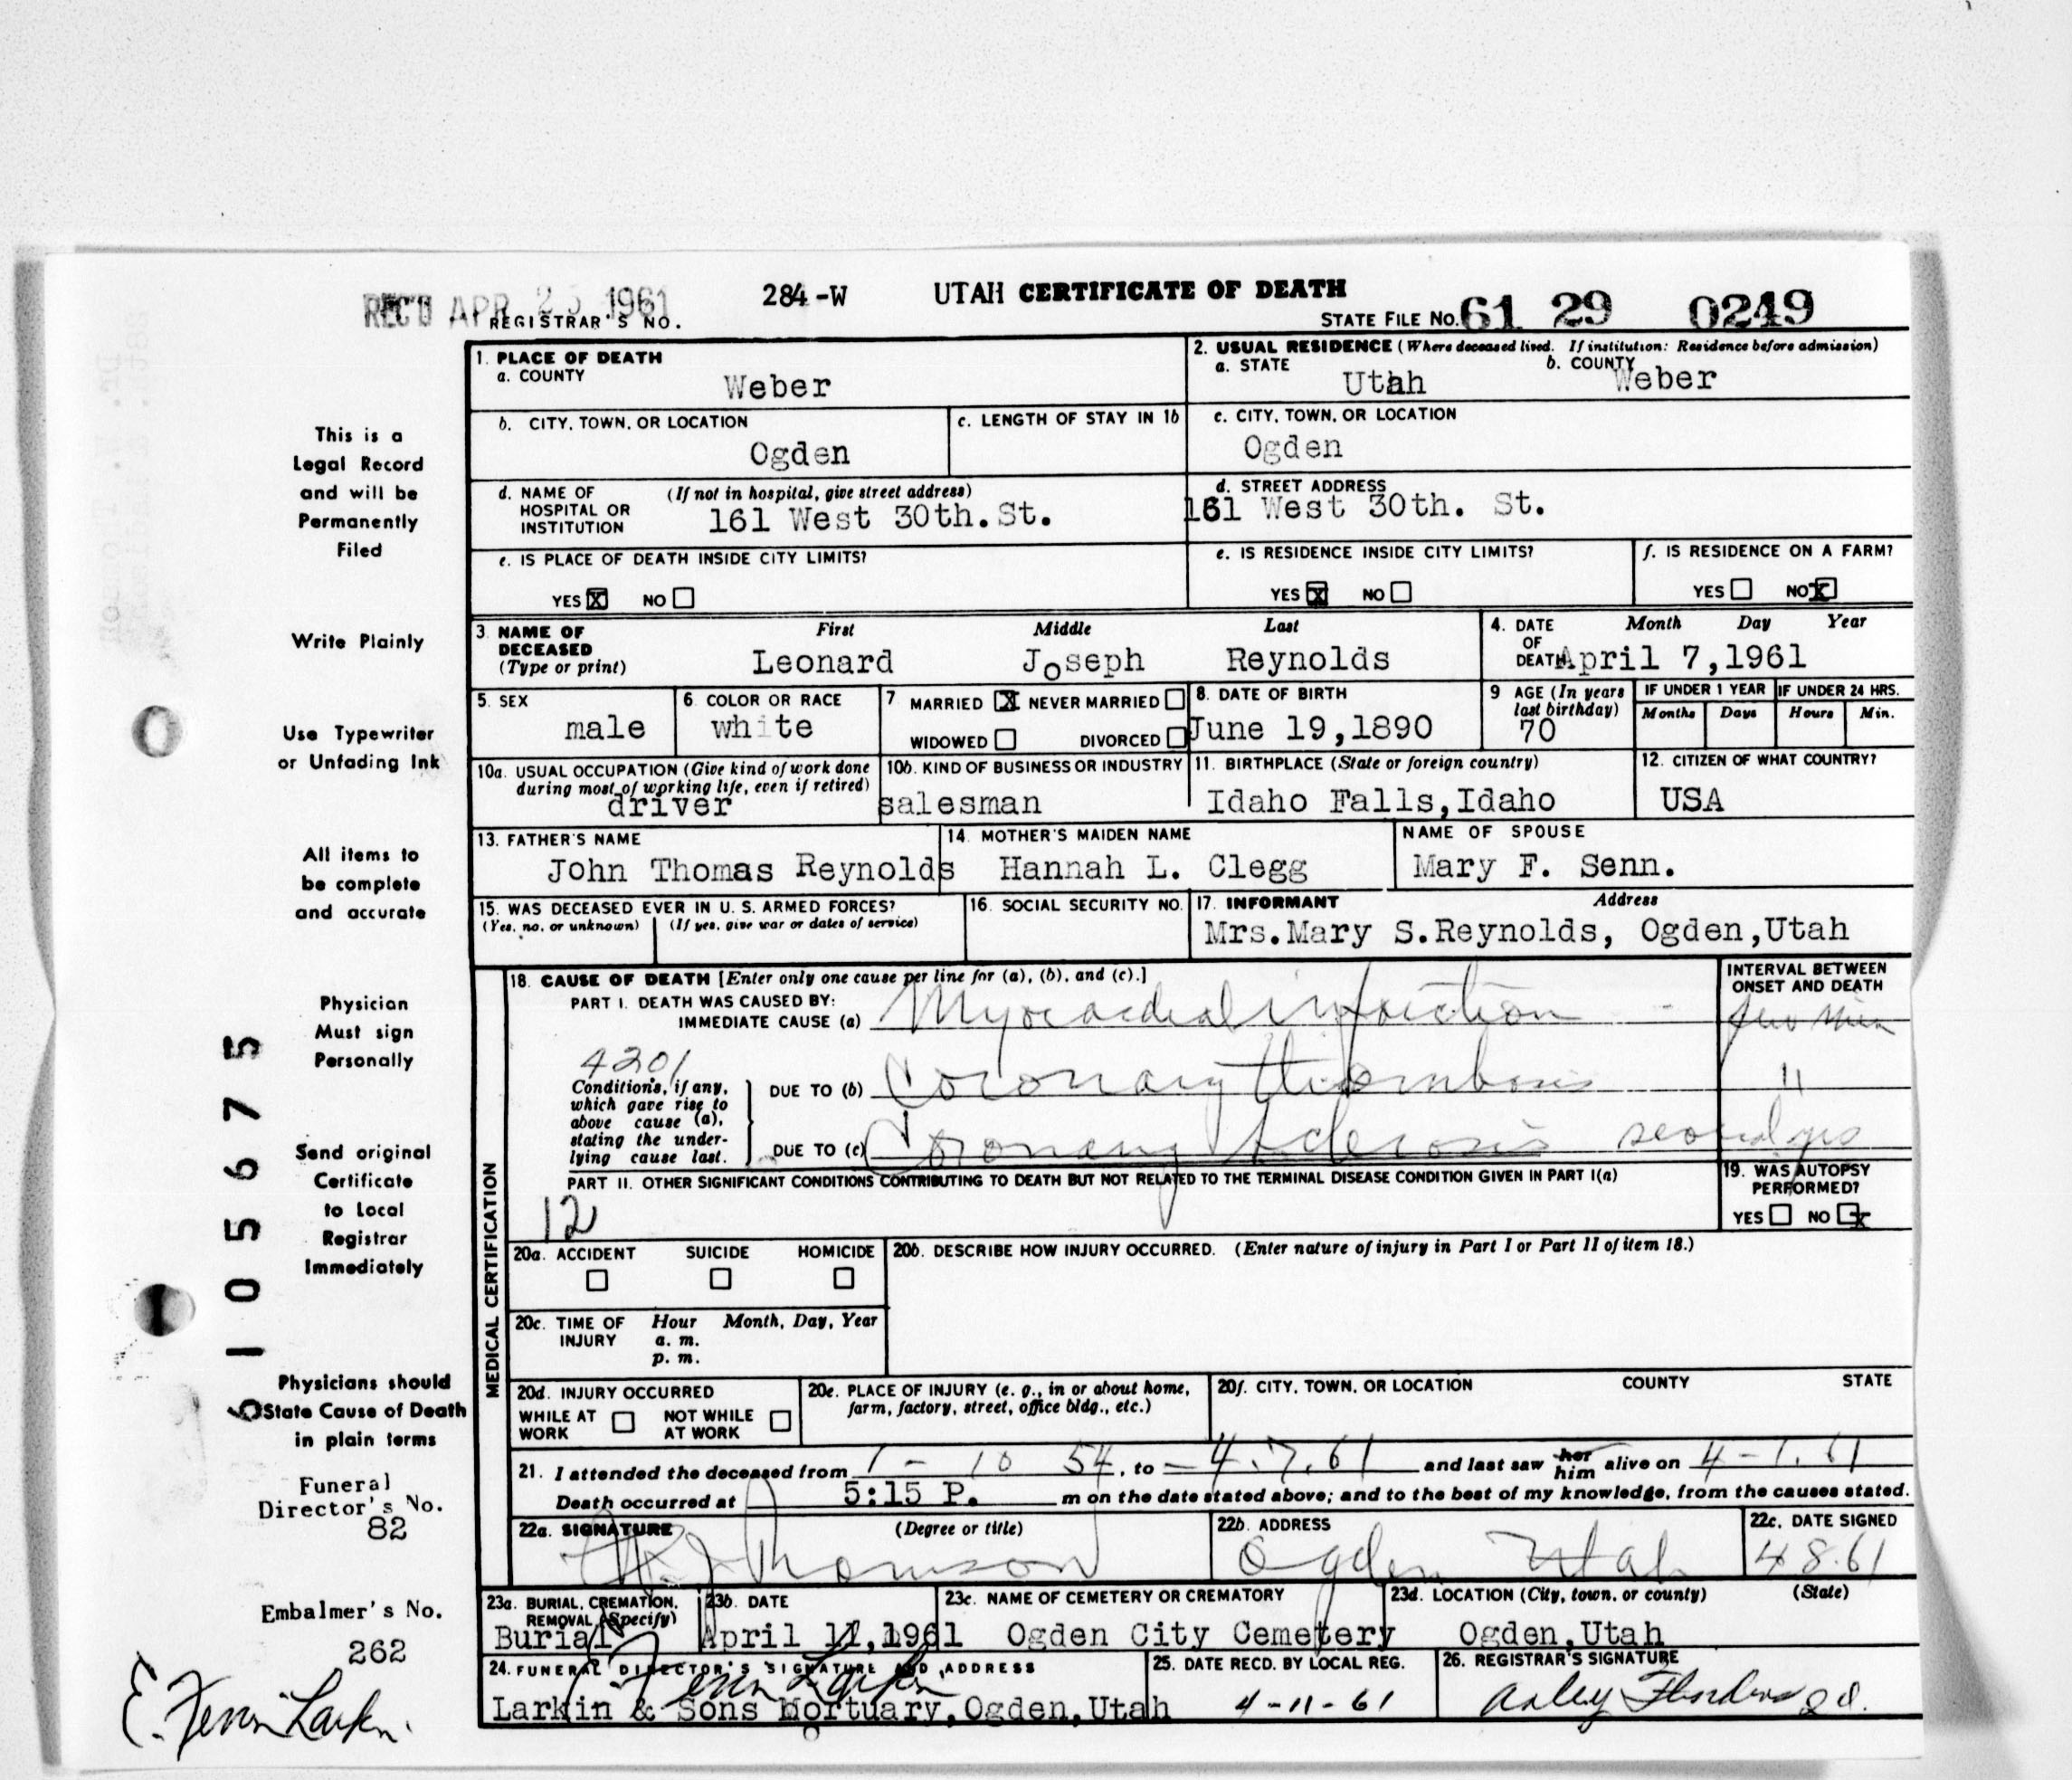 REC'D APR 1961
284-W
UTAH CERTIFICATE OF DEATH
REGISTRAR'S NO.
STATE FILE NO. 61 29 0249
1. PLACE OF DEATH
a. COUNTY
Weber
2. USUAL RESIDENCE (Where deceased lived. If institution: Residence before admission)
a. STATE
Utah
b. COUNTY
Weber
b. CITY, TOWN, OR LOCATION
Ogden
c. LENGTH OF STAY IN 1b
c. CITY, TOWN, OR LOCATION
Ogden
d. NAME OF HOSPITAL OR INSTITUTION
(If not in hospital, give street address)
161 West 30th. St.
d. STREET ADDRESS
161 West 30th. St.
e. IS PLACE OF DEATH INSIDE CITY LIMITS?
YES X NO
e. IS RESIDENCE INSIDE CITY LIMITS?
YES X NO
f. IS RESIDENCE ON A FARM?
YES NO X
3. NAME OF DECEASED
(Type or print)
First Middle Last
Leonard Joseph Reynolds
4. DATE OF DEATH
Month Day Year
April 7,1961
5. SEX
male
6. COLOR OR RACE
white
7 MARRIED X NEVER MARRIED
WIDOWED DIVORCED
8. DATE OF BIRTH
June 19,1890
9 AGE (In years last birthday)
70
IF UNDER 1 YEAR
Months Days
IF UNDER 24 HRS.
Hours Min.
10a. USUAL OCCUPATION (Give kind of work done during most of working life, even if retired)
driver
10b. KIND OF BUSINESS OR INDUSTRY
salesman
11. BIRTHPLACE (State or foreign country)
Idaho Falls,Idaho
12. CITIZEN OF WHAT COUNTRY?
USA
13. FATHER'S NAME
John Thomas Reynolds
14. MOTHER'S MAIDEN NAME
Hannah L. Clegg
NAME OF SPOUSE
Mary F. Senn.
15. WAS DECEASED EVER IN U. S. ARMED FORCES?
(Yes, no, or unknown) (If yes, give war or dates of service)
16. SOCIAL SECURITY NO.
17. INFORMANT Address
Mrs.Mary S.Reynolds, Ogden,Utah
MEDICAL CERTIFICATION
18. CAUSE OF DEATH [Enter only one cause per line for (a), (b), and (c).]
PART I. DEATH WAS CAUSED BY:
IMMEDIATE CAUSE (a) Myocardial infarction
INTERVAL BETWEEN ONSET AND DEATH
few min
4201
Conditions, if any, which gave rise to above cause (a), stating the underlying cause last.
DUE TO (b) Coronary thrombosis "
DUE TO (c) Coronary Sclerosis several yrs
PART II. OTHER SIGNIFICANT CONDITIONS CONTRIBUTING TO DEATH BUT NOT RELATED TO THE TERMINAL DISEASE CONDITION GIVEN IN PART I(a)
12
19. WAS AUTOPSY PERFORMED?
YES NO X
20a. ACCIDENT SUICIDE HOMICIDE
20b. DESCRIBE HOW INJURY OCCURRED. (Enter nature of injury in Part I or Part II of item 18.)
20c. TIME OF INJURY
Hour Month, Day, Year
a. m.
p. m.
20d. INJURY OCCURRED
WHILE AT WORK NOT WHILE AT WORK
20e. PLACE OF INJURY (e. g., in or about home, farm, factory, street, office bldg., etc.)
20f. CITY, TOWN, OR LOCATION COUNTY STATE
21. I attended the deceased from 1 - 10 54, to - 4.7.61 and last saw her him alive on 4-1.61
Death occurred at 5:15 P. m on the date stated above; and to the best of my knowledge, from the causes stated.
22a. SIGNATURE (Degree or title)
Thomson
22b. ADDRESS
Ogden Utah
22c. DATE SIGNED
4 8.61
23a. BURIAL, CREMATION, REMOVAL (Specify)
Burial
23b. DATE
April 11,1961
23c. NAME OF CEMETERY OR CREMATORY
Ogden City Cemetery
23d. LOCATION (City, town, or county) (State)
Ogden,Utah
24. FUNERAL DIRECTOR'S SIGNATURE AND ADDRESS
Larkin & Sons Mortuary,Ogden,Utah
25. DATE RECD. BY LOCAL REG.
4-11-61
26. REGISTRAR'S SIGNATURE
This is a
Legal Record
and will be
Permanently
Filed
Write Plainly
Use Typewriter
or Unfading Ink
All items to
be complete
and accurate
Physician
Must sign
Personally
Send original
Certificate
to Local
Registrar
Immediately
Physicians should
State Cause of Death
in plain terms
105675
Funeral
Director's No.
82
Embalmer's No.
262
E. Larkin